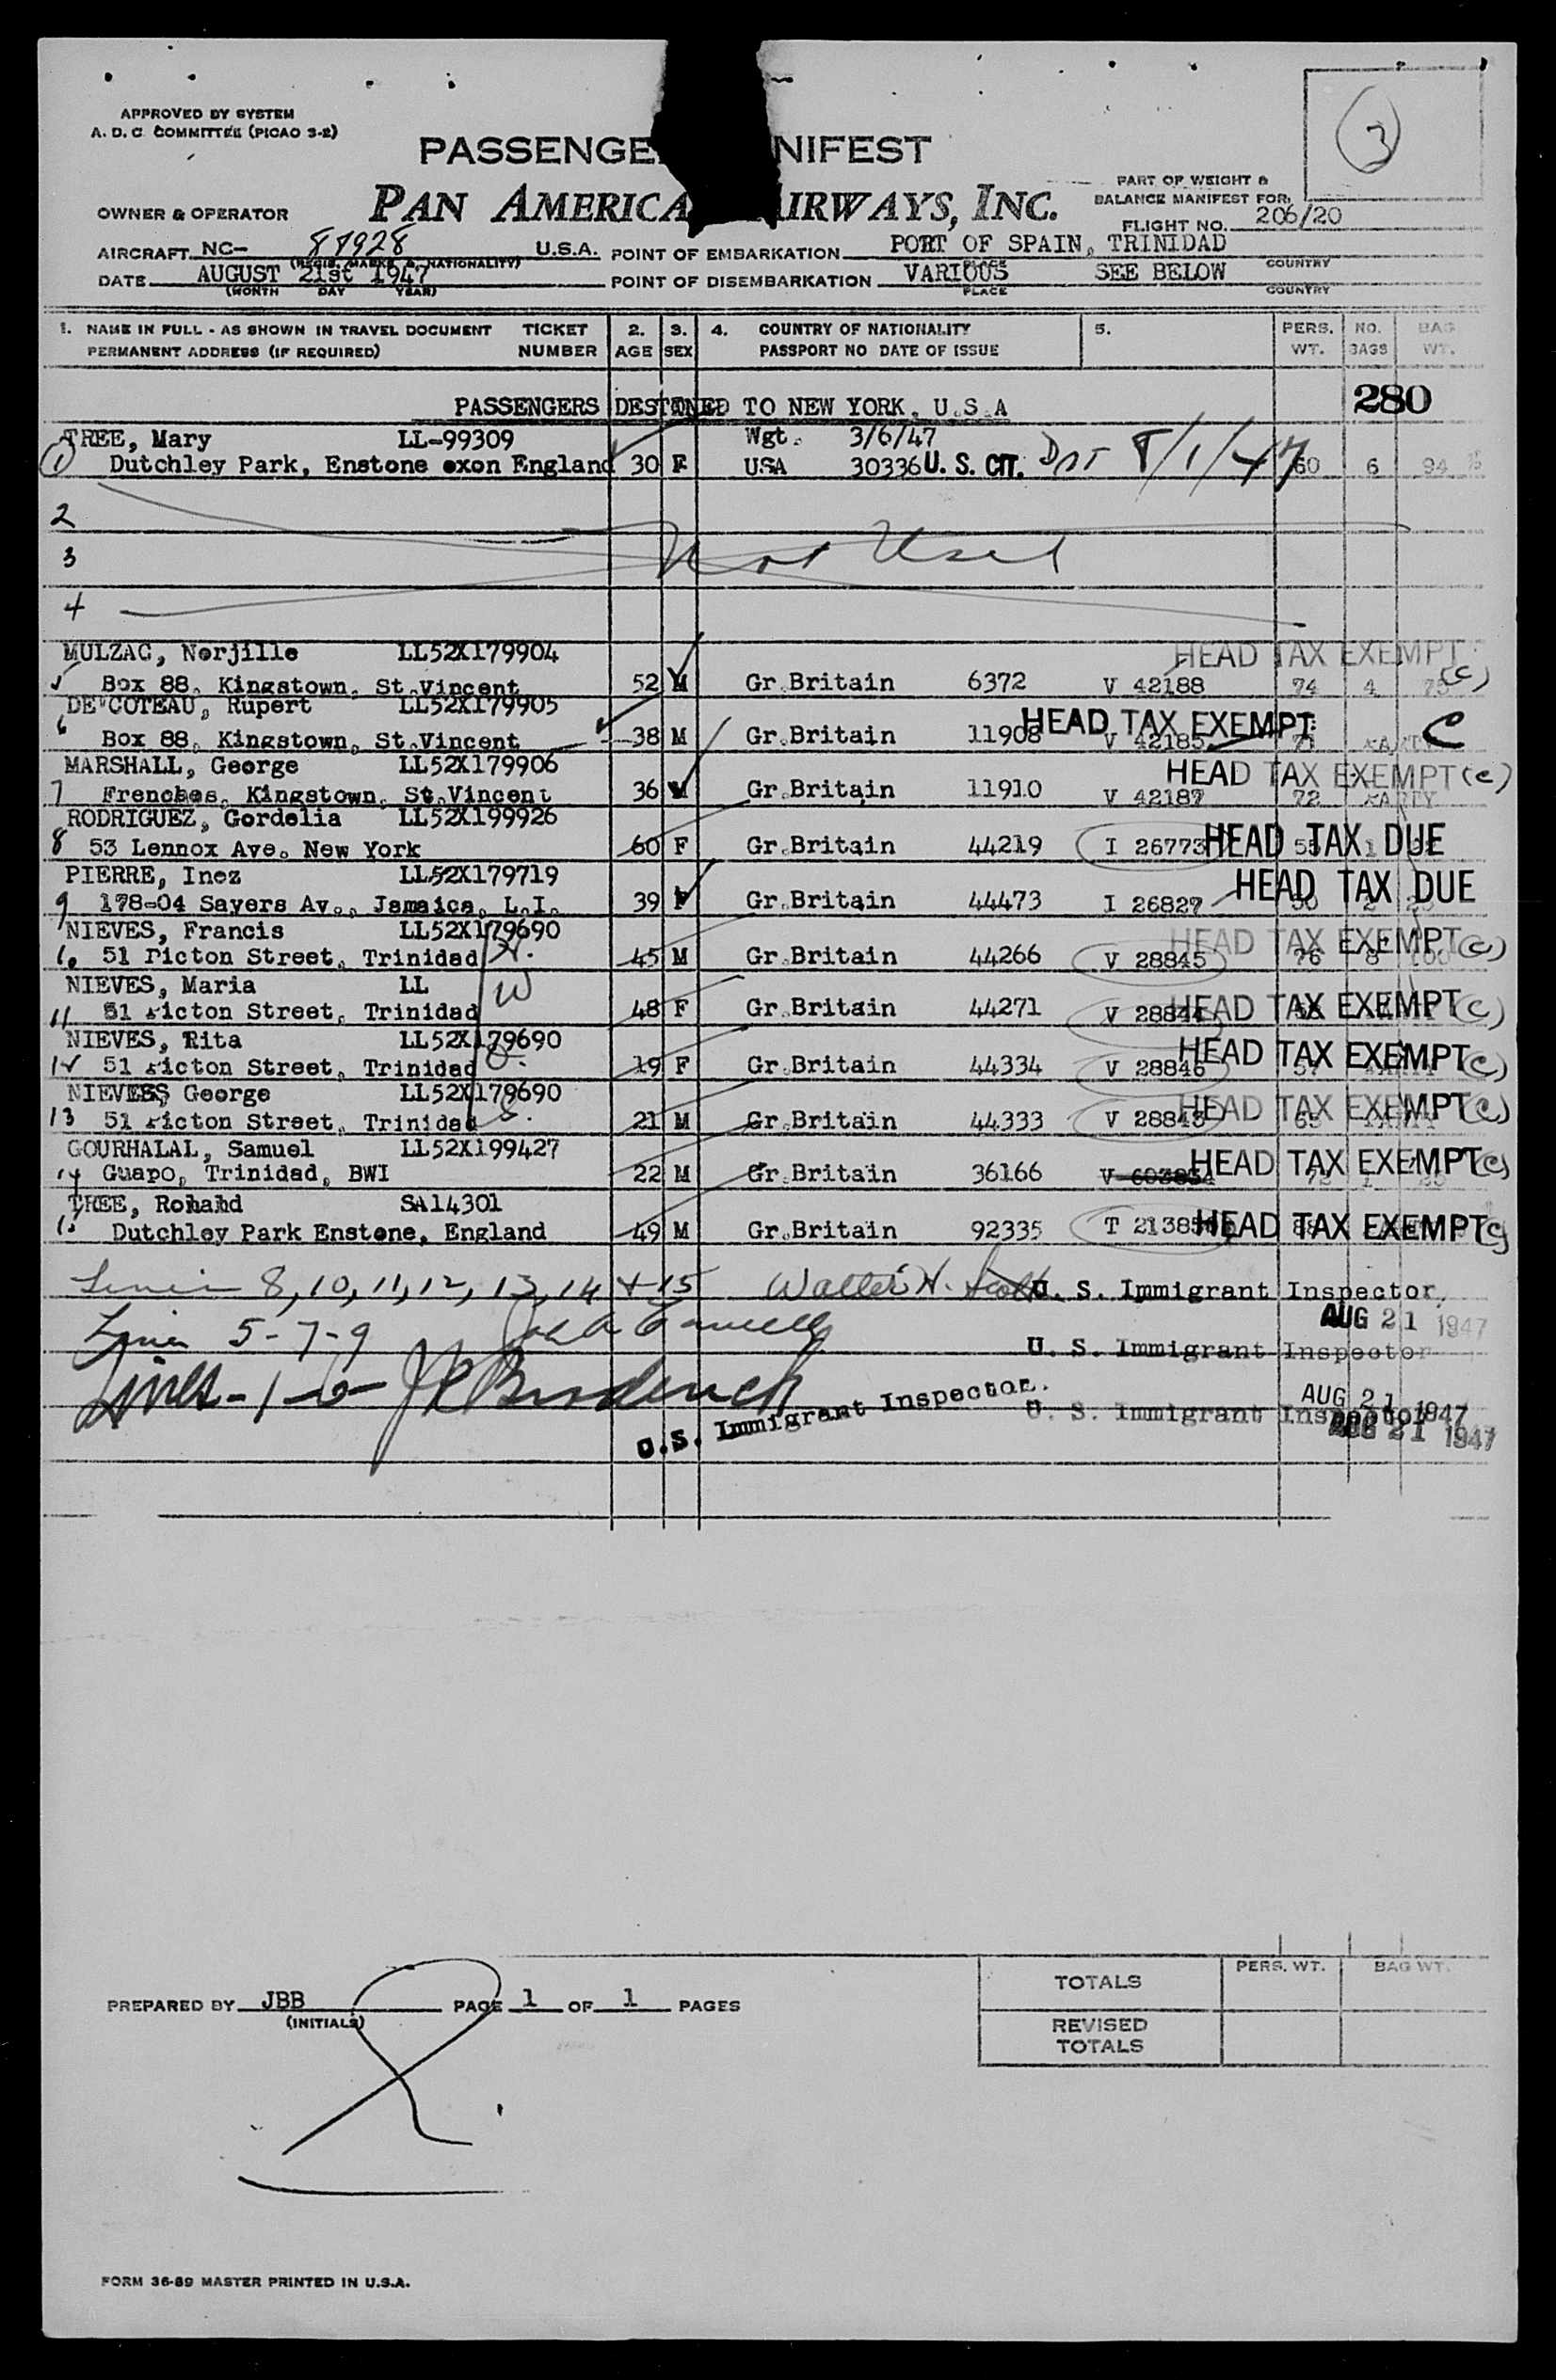 3
APPROVED BY SYSTEM
A. D. C. COMMITTEE (PICAO 3-2)
PASSENGE NIFEST
PAN AMERICA IRWAYS, INC.
PART OF WEIGHT &
BALANCE MANIFEST FOR,
FLIGHT NO. 206/20
OWNER & OPERATOR
AIRCRAFT NC- 87928 U.S.A. POINT OF EMBARKATION PORT OF SPAIN, TRINIDAD
(REGIS. MARKS & NATIONALITY) PLACE COUNTRY
DATE AUGUST 21st 1947 POINT OF DISEMBARKATION VARIOUS SEE BELOW
(MONTH DAY YEAR) PLACE COUNTRY
1. NAME IN FULL - AS SHOWN IN TRAVEL DOCUMENT TICKET 2. 3. 4. COUNTRY OF NATIONALITY 5. PERS. NO. BAG
PERMANENT ADDRESS (IF REQUIRED) NUMBER AGE SEX PASSPORT NO DATE OF ISSUE WT. BAGS WT.
280
PASSENGERS DESTINED TO NEW YORK, U.S.A
TREE, Mary LL-99309 Wgt. 3/6/47
1 Dutchley Park, Enstone oxon England 30 F USA 30336 U. S. CIT. 8/1/47 60 6 94
2
Not Used
3
4
MULZAC, Norjille LL52X179904 HEAD TAX EXEMPT
5 Box 88, Kingstown, St.Vincent 52 M Gr.Britain 6372 V 42188 74 4 (C)
DE COTEAU, Rupert LL52X179905 HEAD TAX EXEMPT C
6 Box 88, Kingstown, St.Vincent 38 M Gr.Britain 11908 V 42185
MARSHALL, George LL52X179906 HEAD TAX EXEMPT (C)
7 Frenches, Kingstown, St.Vincent 36 M Gr.Britain 11910 V 42187 72 PARTY
RODRIGUEZ, Gordelia LL52X199926
8 53 Lennox Ave. New York 60 F Gr.Britain 44219 I 26773 HEAD TAX DUE
PIERRE, Inez LL52X179719 HEAD TAX DUE
9 178-04 Sayers Av., Jamaica, L.I. 39 F Gr.Britain 44473 I 26827
NIEVES, Francis LL52X179690 HEAD TAX EXEMPT (C)
10 51 Picton Street, Trinidad 45 M Gr.Britain 44266 V 28845 76 8
NIEVES, Maria LL W
11 51 Picton Street, Trinidad 48 F Gr.Britain 44271 V 28844 HEAD TAX EXEMPT (C)
NIEVES, Rita LL52X179690 HEAD TAX EXEMPT (C)
12 51 Picton Street, Trinidad 19 F Gr.Britain 44334 V 28846
NIEVES, George LL52X179690 HEAD TAX EXEMPT (C)
13 51 Picton Street, Trinidad S. 21 M Gr.Britain 44333 V 28843 65
GOURHALAL, Samuel LL52X199427 HEAD TAX EXEMPT (C)
14 Guapo, Trinidad, BWI 22 M Gr.Britain 36166
TREE, Ronald SA14301
15 Dutchley Park Enstone, England 49 M Gr.Britain 92335 T 21385 HEAD TAX EXEMPT (C)
Lines 8, 10, 11, 12, 13, 14 + 15 Walter H. Scott U. S. Immigrant Inspector,
AUG 21 1947
Lines 5-7-9
U. S. Immigrant Inspector
AUG 21 1947
Lines - 1-6-
U.S. Immigrant Inspector.
U. S. Immigrant Inspector
AUG 21 1947
PREPARED BY JBB PAGE 1 OF 1 PAGES
(INITIALS)
PERS. WT. BAG WT.
TOTALS
REVISED
TOTALS
FORM 36-89 MASTER PRINTED IN U.S.A.